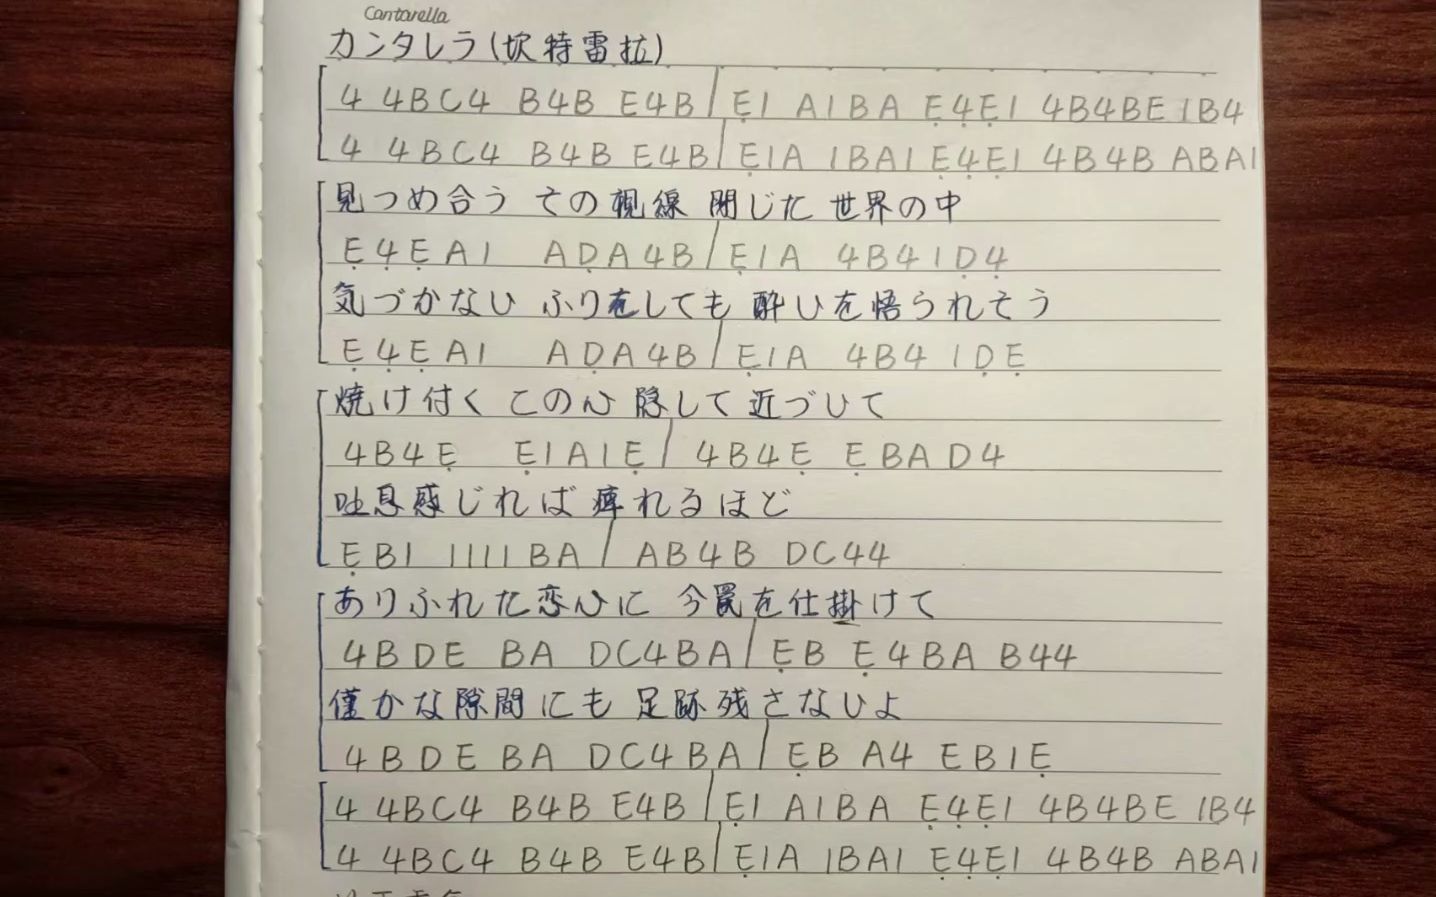 Cantarella
カンタレラ(坎特雷拉)
4 4BC4 B4B E4B / Ẹ1 A1BA Ẹ4̣Ẹ1 4B4BE 1B4
4 4BC4 B4B E4B / Ẹ1A 1BA1 Ẹ4̣Ẹ1 4B4B ABA1
見つめ合う その視線 閉じた 世界の中
Ẹ4̣ẸA1 AḌA4B / Ẹ1A 4B41Ḍ4̣
気づかない ふりをしても 酔いを悟られそう
Ẹ4̣ẸA1 AḌA4B / Ẹ1A 4B4 1ḌẸ
焼け付く この心 隠して 近づいて
4B4Ẹ Ẹ1A1Ẹ / 4B4Ẹ ẸBAD4
吐息感じれば 痺れるほど
ẸB1 1111BA / AB4B DC44
ありふれた恋心に 今罠を仕掛けて
4BDE BA DC4BA / ẸB Ẹ4BA B44
僅かな隙間にも 足跡残さないよ
4BDE BA DC4BA / ẸB A4 EB1Ẹ
4 4BC4 B4B E4B / Ẹ1 A1BA Ẹ4̣Ẹ1 4B4BE 1B4
4 4BC4 B4B E4B / Ẹ1A 1BA1 Ẹ4̣Ẹ1 4B4B ABA1